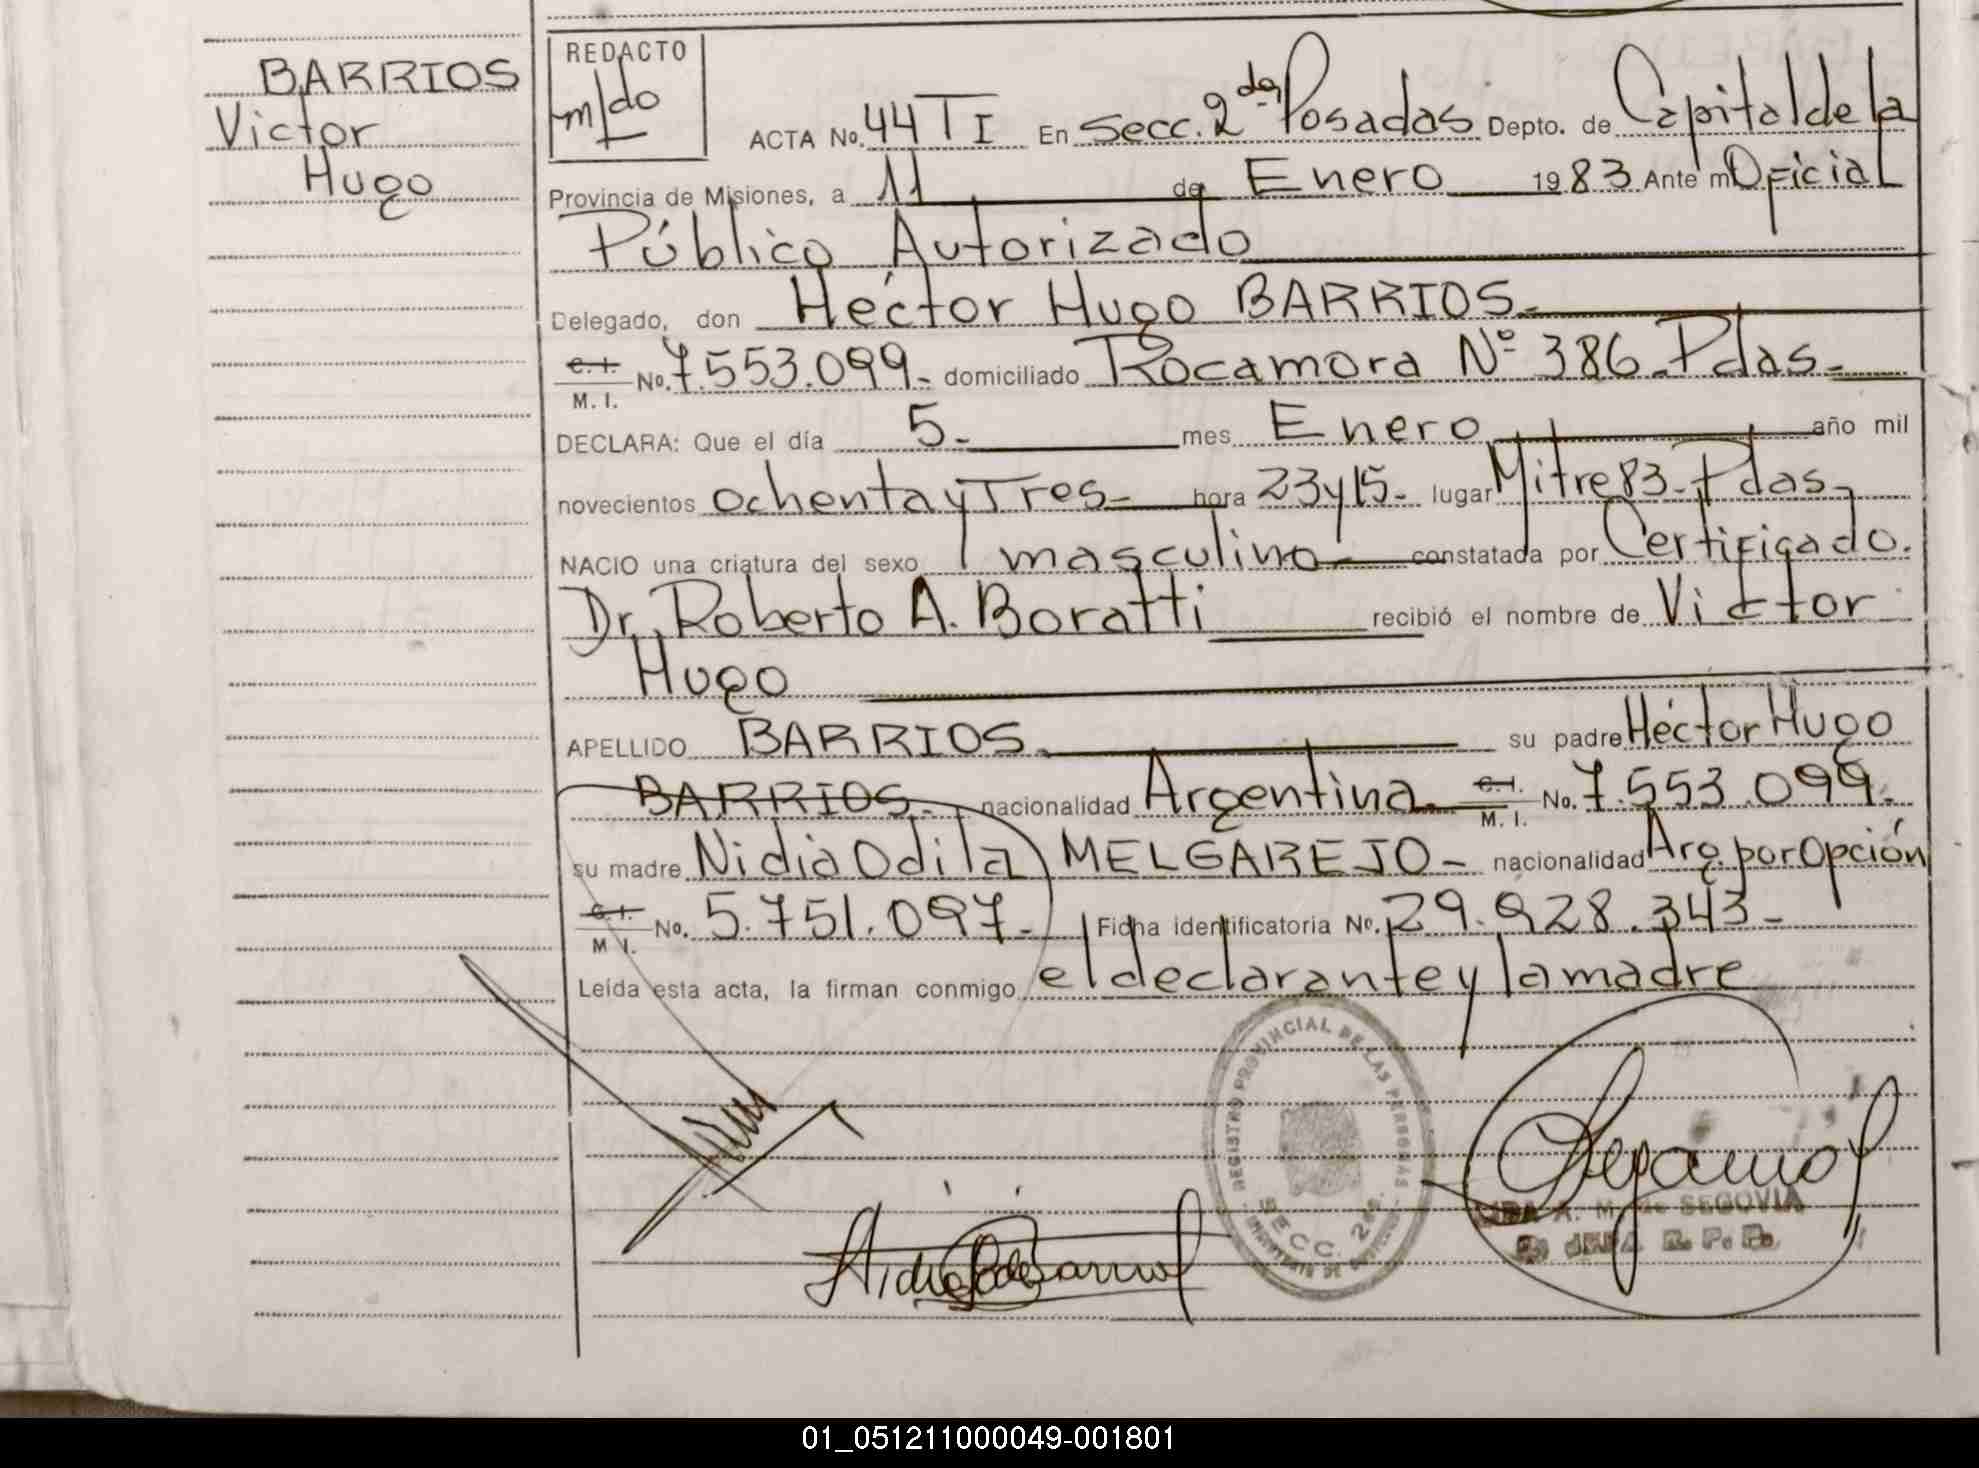 BARRIOS
Victor
Hugo
REDACTO
m/do
ACTA No. 44 T I En Secc. 2da Posadas Depto. de Capital de la
Provincia de Misiones, a 11 de Enero 1983 Ante mi Oficial
Público Autorizado
Delegado, don Héctor Hugo BARRIOS.
C. I. M. I. No. 7.553.099.- domiciliado Rocamora Nº 386. Pdas.-
DECLARA: Que el día 5.- mes Enero año mil
novecientos ochenta y Tres- hora 23 y 15.- lugar Mitre 83-Pdas.
NACIO una criatura del sexo masculino constatada por Certificado.
Dr. Roberto A. Boratti recibió el nombre de Victor
Hugo
APELLIDO BARRIOS. su padre Héctor Hugo
BARRIOS.- nacionalidad Argentina. C. I. M. I. No. 7.553.099.
su madre Nidia Odila MELGAREJO- nacionalidad Arg. por Opción
C. I. M I. No. 5.751.097.- Ficha identificatoria No. 29.928.343-
Leída esta acta, la firman conmigo el declarante y la madre
REGISTRO PROVINCIAL DE LAS PERSONAS
SECC. 2da.
A. M. de SEGOVIA
R. P. P.
01_051211000049-001801